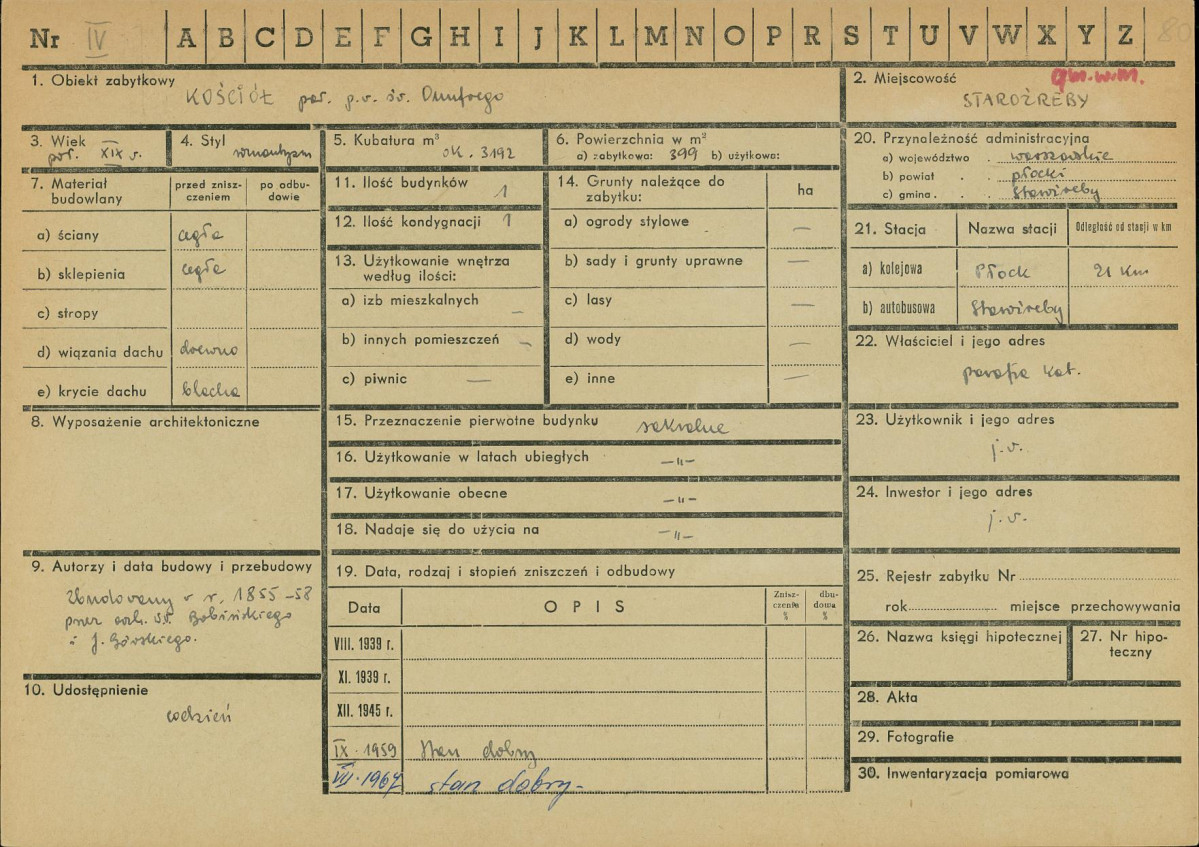 Nr IV A B C D E F G H I J K L M N O P R S T U V W X Y Z 80
1. Obiekt zabytkowy
KOŚCIÓŁ par. p.w. św. Onufrego
2. Miejscowość
gm. w.m.
STAROŹREBY
3. Wiek
poł. XIX w.
4. Styl
romantyzm
5. Kubatura m³
ok. 3192
6. Powierzchnia w m²
a) zabytkowa: 399 b) użytkowa:
20. Przynależność administracyjna
a) województwo . warszawskie
b) powiat . . płocki
c) gmina . . . Staroźreby
7. Materiał budowlany
przed zniszczeniem
po odbudowie
a) ściany cegła
b) sklepienia cegła
c) stropy
d) wiązania dachu drewno
e) krycie dachu blacha
11. Ilość budynków 1
12. Ilość kondygnacji 1
13. Użytkowanie wnętrza
według ilości:
a) izb mieszkalnych –
b) innych pomieszczeń –
c) piwnic —
14. Grunty należące do
zabytku:
ha
a) ogrody stylowe —
b) sady i grunty uprawne —
c) lasy —
d) wody —
e) inne —
21. Stacja Nazwa stacji Odległość od stacji w km
a) kolejowa Płock 21 km
b) autobusowa Staroźreby
22. Właściciel i jego adres
parafia kat.
8. Wyposażenie architektoniczne
15. Przeznaczenie pierwotne budynku sakralne
16. Użytkowanie w latach ubiegłych —"—
17. Użytkowanie obecne —"—
18. Nadaje się do użycia na —"—
23. Użytkownik i jego adres
j.w.
24. Inwestor i jego adres
j.w.
9. Autorzy i data budowy i przebudowy
Zbudowany w r. 1855–58
przez arch. św. Bobińskiego
i J. Górskiego.
10. Udostępnienie
codzień
19. Data, rodzaj i stopień zniszczeń i odbudowy
Data OPIS Zniszczenia % dbudowa %
VIII. 1939 r.
XI. 1939 r.
XII. 1945 r.
IX. 1959 Stan dobry
VII. 1967 stan dobry-
25. Rejestr zabytku Nr
rok miejsce przechowywania
26. Nazwa księgi hipotecznej
27. Nr hipoteczny
28. Akta
29. Fotografie
30. Inwentaryzacja pomiarowa